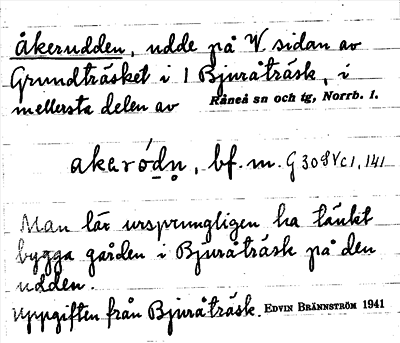 åkerudden, udde på V sidan av
Grundträsket i 1 Bjuråträsk, i
mellersta delen av Råneå sn och tg, Norrb. l.
akaródṇ, bf. m. G 30
Man lär ursprungligen ha tänkt
bygga gården i Bjuråträsk på den
udden.
Uppgiften från Bjuråträsk. EDVIN BRÄNNSTRÖM 1941